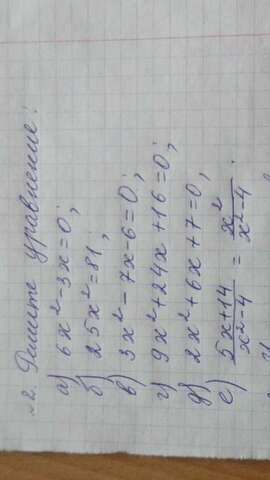 №2. Решите уравнение:
а) 6x²-3x=0;
б) 25x²=81;
в) 3x²-7x-6=0;
г) 9x²+24x+16=0;
д) 2x²+6x+7=0;
е) (5x+14)/(x²-4) = x²/(x²-4).